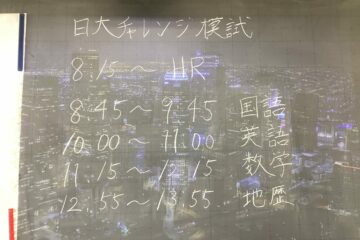 日大チャレンジ模試
8.15〜 HR
8.45〜9.45 国語
10.00〜11.00 英語
11.15〜12.15 数学
12.55〜13.55 地歴